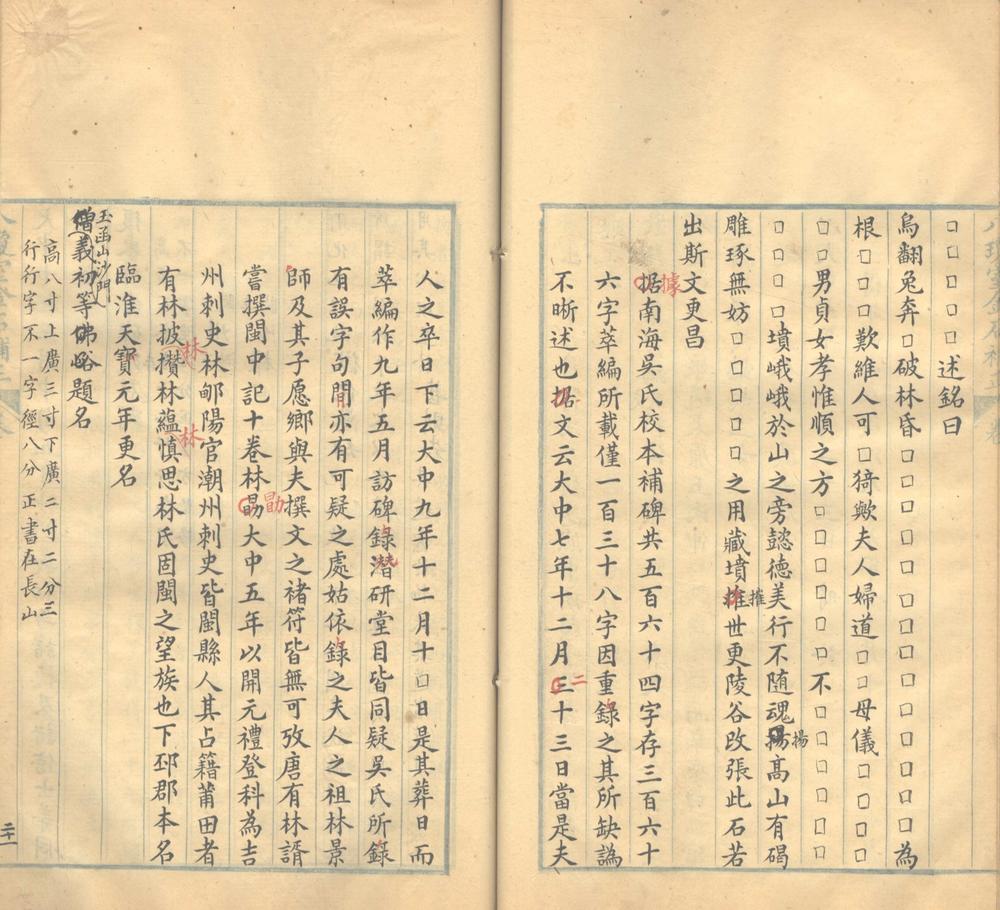 □□□□□述銘曰
烏翻兔奔□破林昏□□□□□□□□為
根□□□歎維人可□猗歟夫人婦道□□母儀□□□□
□□男貞女孝惟順之方□□□□□□不□□□□□
□□□□墳峨峨於山之旁懿德美行不隨魂揚高山有碣
揚
雕琢無妨□□□□□之用藏墳摧世更陵谷改張此石若
摧
出斯文更昌
据南海吳氏校本補碑共五百六十四字存三百六十
據
六字萃編所載僅一百三十八字因重錄之其所缺譌
不晰述也据文云大中七年十二月三十三日當是夫
二
人之卒日下云大中九年十二月十□日是其葬日而
萃編作九年五月訪碑錄潛研堂目皆同疑吳氏所錄
有誤字句間亦有可疑之處姑依錄之夫人之祖林景
師及其子愿鄉與夫撰文之褚符皆無可攷唐有林諝
嘗撰閩中記十卷林勗大中五年以開元禮登科為吉
勖
州刺史林郇陽官潮州刺史皆閩縣人其占籍莆田者
有林披攅林蘊慎思林氏固閩之望族也下邳郡本名
林
林
臨淮天寶元年更名
玉函山沙門
僧義初等佛峪題名
高八寸上廣三寸下廣二寸二分三
行行字不一字徑八分正書在長山